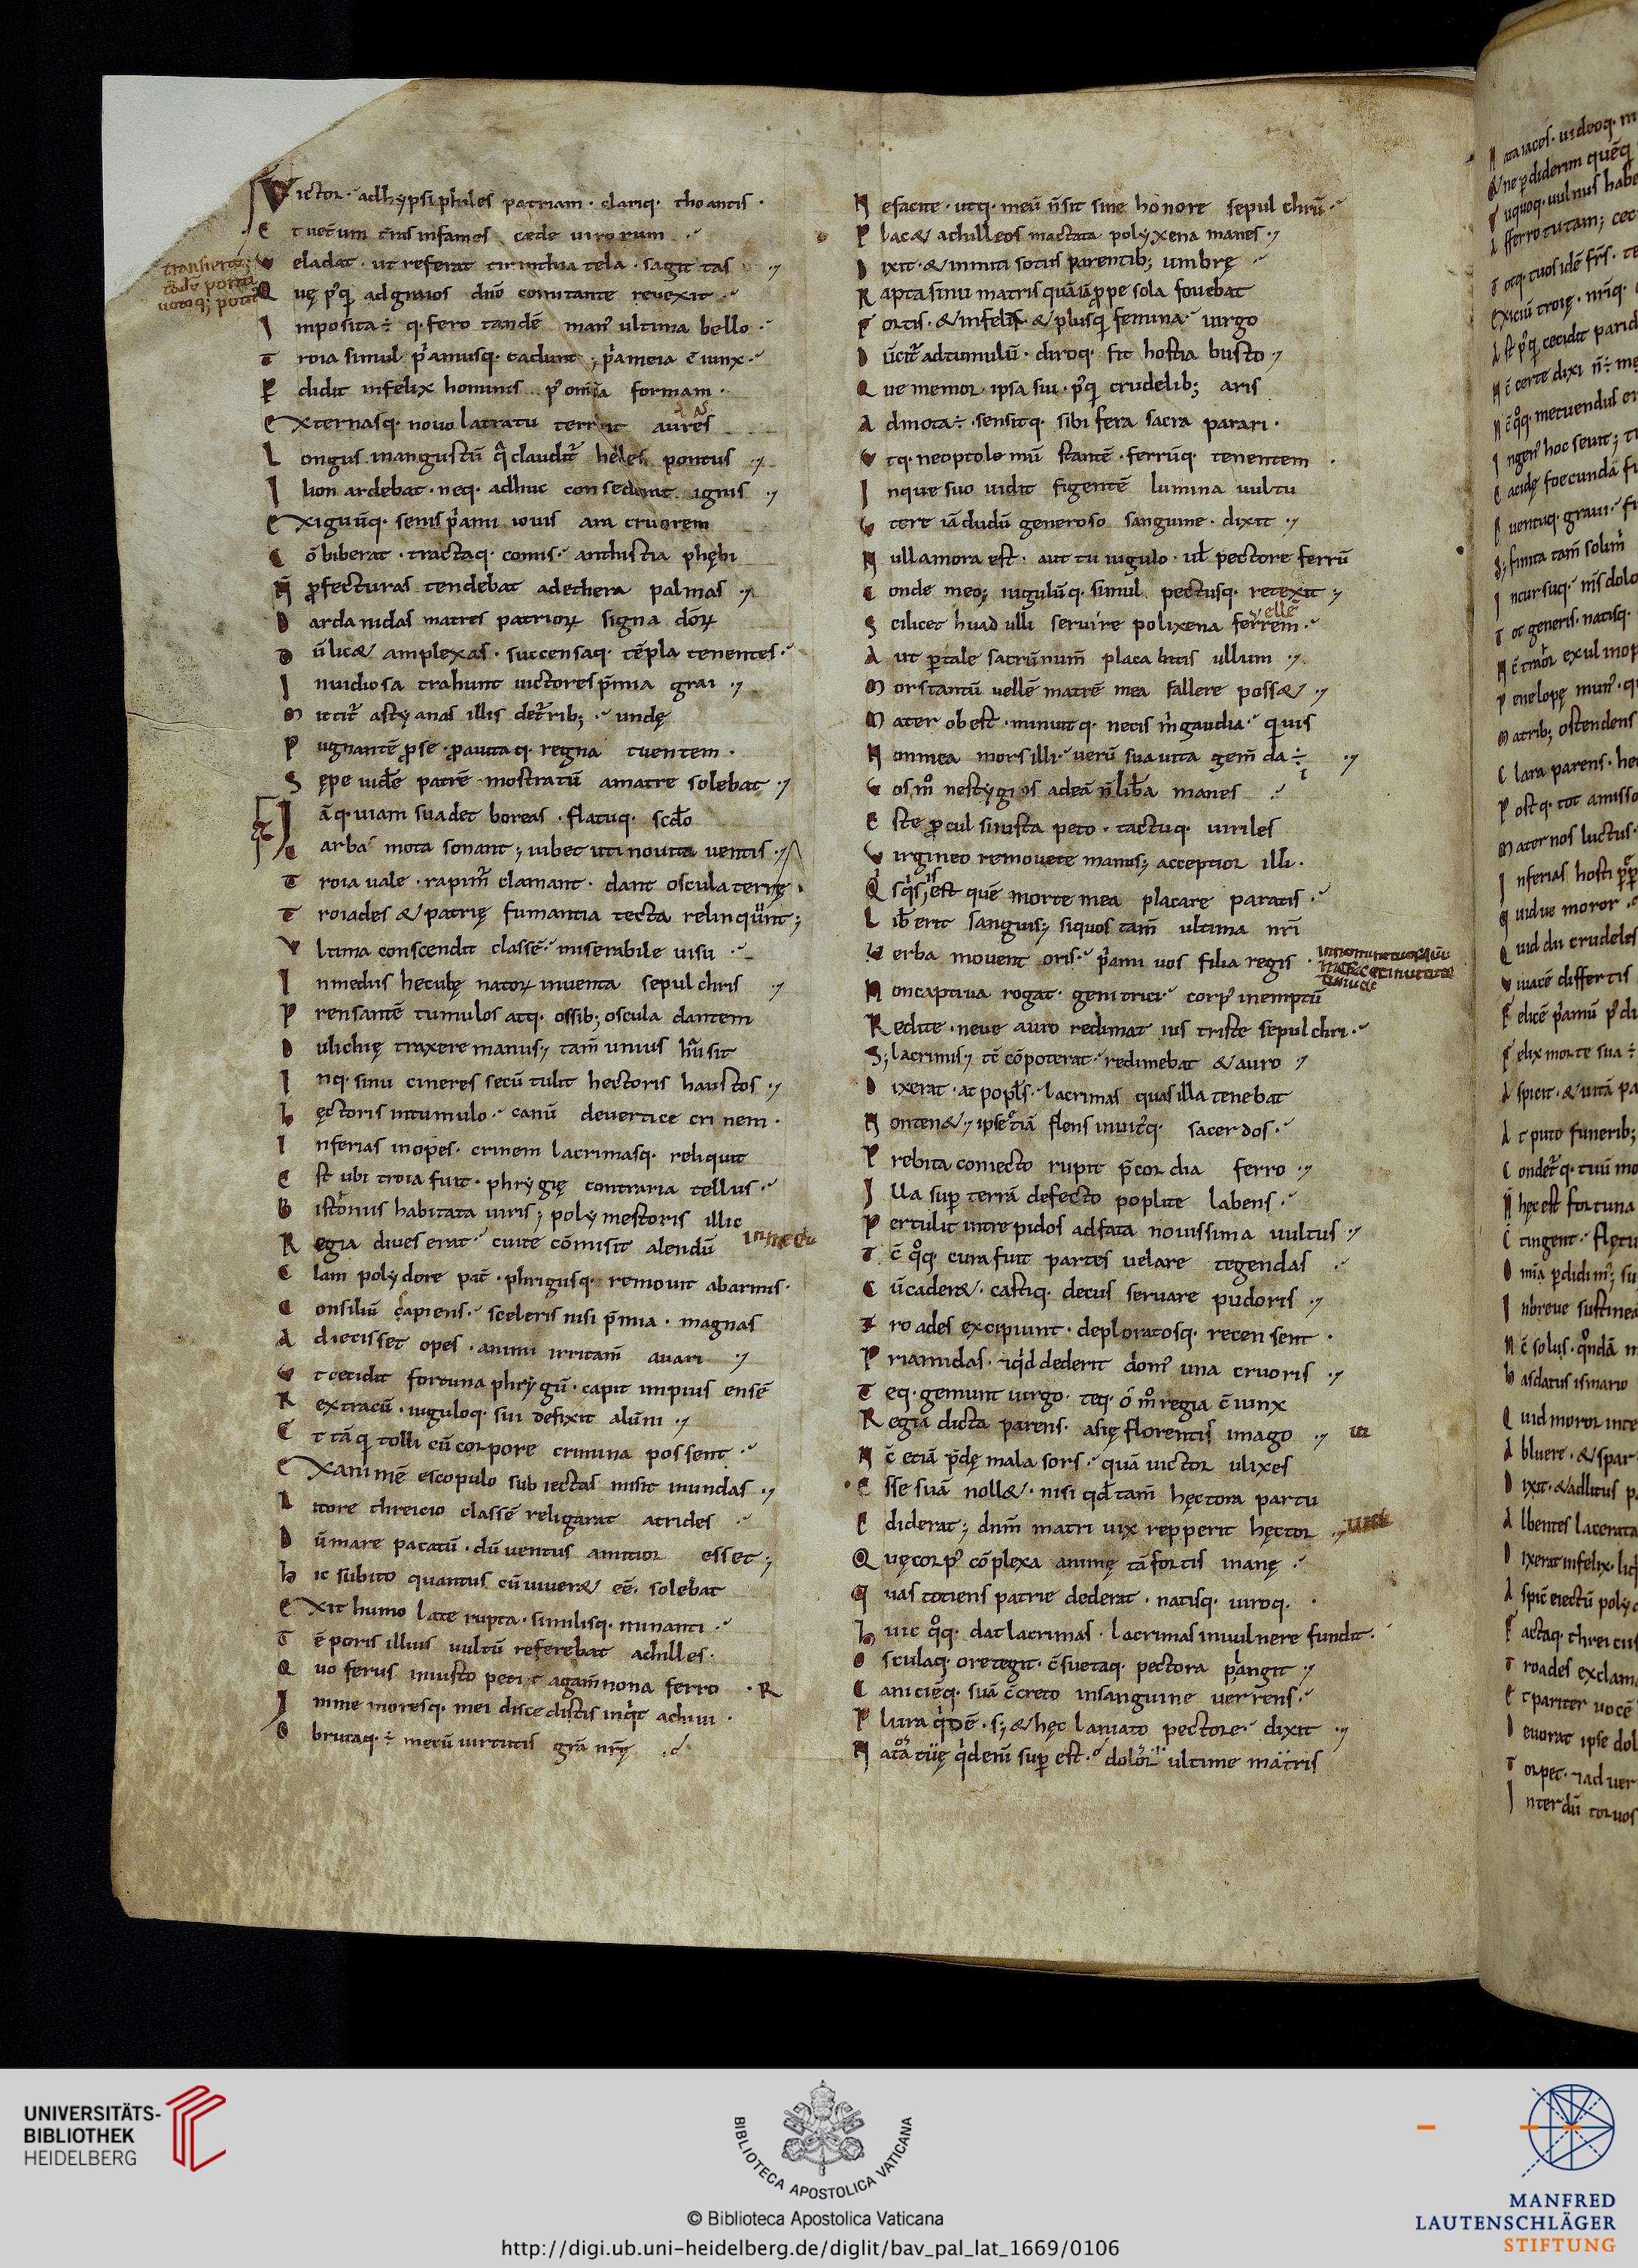 Victor · adhypsiphiles patriam · clariq· thoantis ·
E t ueterum t̄ras infames cede uirorum
V eladat · ut referat tirinthia tela · sagittas
Q uę p'q̄ adgraios dn̄o comitante reuexit
I mposita÷ · q· fero tandē man' ultima bello
T roia simul p̄amusq· cadunt ; p̄ameia c̄iunx
P didit infelix hominis p' omīa formam ·
E xternasq· nouo latratu terruit auras
L ongus inangustū q̄ claudit' helles pontus
I lion ardebat · neq· adhuc consederat ignis
E xiguūq· senis p̄ami iouis ara cruorem
C ōbiberat · tractaq· comis · antistita phębi
N̄ p̄fecturas tendebat adethera palmas
D ardanidas matres patrioꝝ signa dōꝝ
D ū lic& amplexas · succensaq· tēpla tenentes
I nuidiosa trahunt uictores p̄mia grai
M ittit' astyanas illis det'rib; · undę
P ugnantē p̄se · p̄auitaq· regna tuentem ·
S ępe uidē patrē mostratū amatre solebat
I āq· uiam suadet boreas · flatuq· scd̄o
C arbas' mota sonant ; iubet uti nauita uentis
T roia uale · rapim̄ clamant · dant oscula terrę
T roiades & patrię fumantia tecta relinquunt ;
V ltima conscendit classē · miserabile uisu
I nmediis hecubę natoꝝ inuenta sepulchris
P rensantē tumulos atq· ossib; oscula dantem
D ulichię traxere manus ; tam̄ unius hausit
I nq· sinu cineres secū tulit hectoris haustos
H ęctoris intumulo · canū deuertice crinem ·
I nferias inopes · crinem lacrimasq· reliquit
E st ubi troia fuit · phrygię contraria tellus
B istoniis habitata uiris ; polymestoris illic
R egia diues erat · cuite cōmisit alendū
C lam polydore pat̄ · phrigiisq· remouit abarmis ·
C onsiliū sapiens · sceleris nisi p̄mia · magnas
A diecisset opes · animi irritam̄ auari
V t cecidit fortuna phrygū · capit impius ensē
R extracū · iuguloq· sui defixit alūni
E t tāq̄ tolli cū corpore crimina possent
E xanimē escopulo subiectas misit inundas
L itore threicio classē religarat atrides
D ūmare pacatū · dū uentus amitior esset ;
H ic subito quantus cū uiuer& eē solebat
E xit humo late rupta · similisq· minanti
T ēporis illius uultū referebat achilles ·
Q uo ferus iniusto petit agam̄nona ferro · R
I mme moresq· mei discedistis inq̄t achiui ·
O brutaq· ÷ mecū uirtutis gr̄a nr̄ę
N efacite · utq· meū n̄sit sine honore sepulchrū
P lac& achilleos mactata polyxena manes
D ixit · & inmiti sociis parentib; umbrę
R apta sinu matris quā iā p̄pe sola fouebat
F ortis · & infelix & plusq̄ femina · uirgo
D ūcit' adtumulū · diroq· fit hostia busto
Q ue memor ipsa sui · p'q̄ crudelib; aris
A dmota÷ · sensitq· sibi fera sacra parari ·
V tq· neoptolemū stantē · ferrūq· tenentem ·
I nque suo uidit figentē lumina uultu
V tere iādudū generoso sanguine · dixit
N ulla mora est · aut tu iugulo · uł pectore ferrū
C onde meo ; iugulūq· simul pectusq· retexit
S cilicet haud ulli seruire polixena ferrem
uellē
A ut p̄tale sacrū num̄ placabitis ullum
M ors tantū uellē matrē mea fallere poss&
M ater obest · minuitq· necis m̄ gaudia · quis
N onmea mors illi · uerū sua uita gem̄da÷
V os m̊ nestygios adeā n̄lib̄a manes
E ste p̄cul siiusta peto · tactuq· uiriles
V irgineo remouete manus ; acceptior illi ·
Q sq̄s is est quē morte mea placare paratis
L ib̄ erit sanguis ; siquos tam̄ ultima nr̄i
V erba mouent oris · p̄ami uos filia regis
N oncaptiua rogat · genitrici · corp' inemptū
R edite · neue auro redimat ius triste sepulchri
S ; lacrimis ; tc̄ cōpoterat · redimebat & auro
D ixerat · at popłs · lacrimas quas illa tenebat
N onten& ; ipse etiā flens inuit'q· sacerdos
P rebita coniecto rupit p̄cordia ferro
I lla sup̄ terrā defecto poplite labens
P ertulit intrepidos adfata nouissima uultus
T c̄ q̊q· cura fuit partes uelare tegendas
C ūcader& · castiq· decus seruare pudoris
T roades excipiunt · deploratosq· recensent ·
P riamidas · ⁊qd̄ dederit dom' una cruoris
T eq· gemunt uirgo · teq· ó m̊ regia c̄iunx
R egia dicta parens · asię florentis imago
N c̄ etiā p̄dę mala sors · quā uictor ulixes
E sse suā noll& · nisi qd̄ tam̄ hęctora partu
E diderat ; dnm̄ matri uix repperit hęctor
Q uę corp' cōplexa animę tā fortis inanę
Q uas totiens patrie dederat · natisq· uiroq·
H uic q̊q· dat lacrimas · lacrimas inuulnere fundit
O sculaq· ore tegit · c̄suetaq· pectora p̄angit
C aniciēq· suā c̄creto insanguine uerrens
P lura q̄dē · s ; & hęc laniato pectore dixit
N ata tuę q̄dem̄ sup̄ est · dolor ultime matris
UNIVERSITÄTS-
BIBLIOTHEK
HEIDELBERG
BIBLIOTECA APOSTOLICA VATICANA
© Biblioteca Apostolica Vaticana
http://digi.ub.uni-heidelberg.de/diglit/bav_pal_lat_1669/0106
MANFRED
LAUTENSCHLÄGER
STIFTUNG